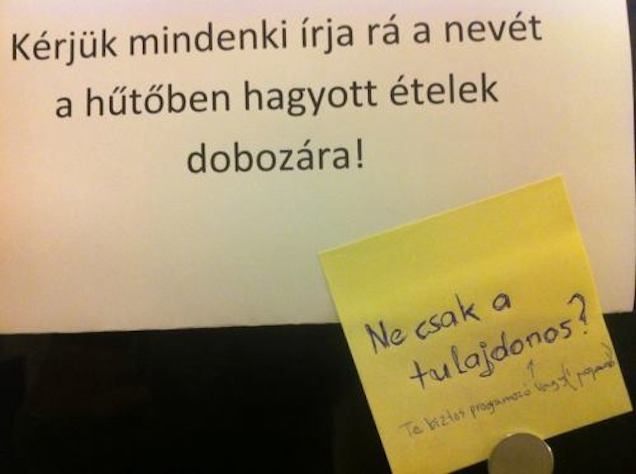 Kérjük mindenki írja rá a nevét
a hűtőben hagyott ételek
dobozára!
Ne csak a
tulajdonos?
Te biztos programozó vagy!